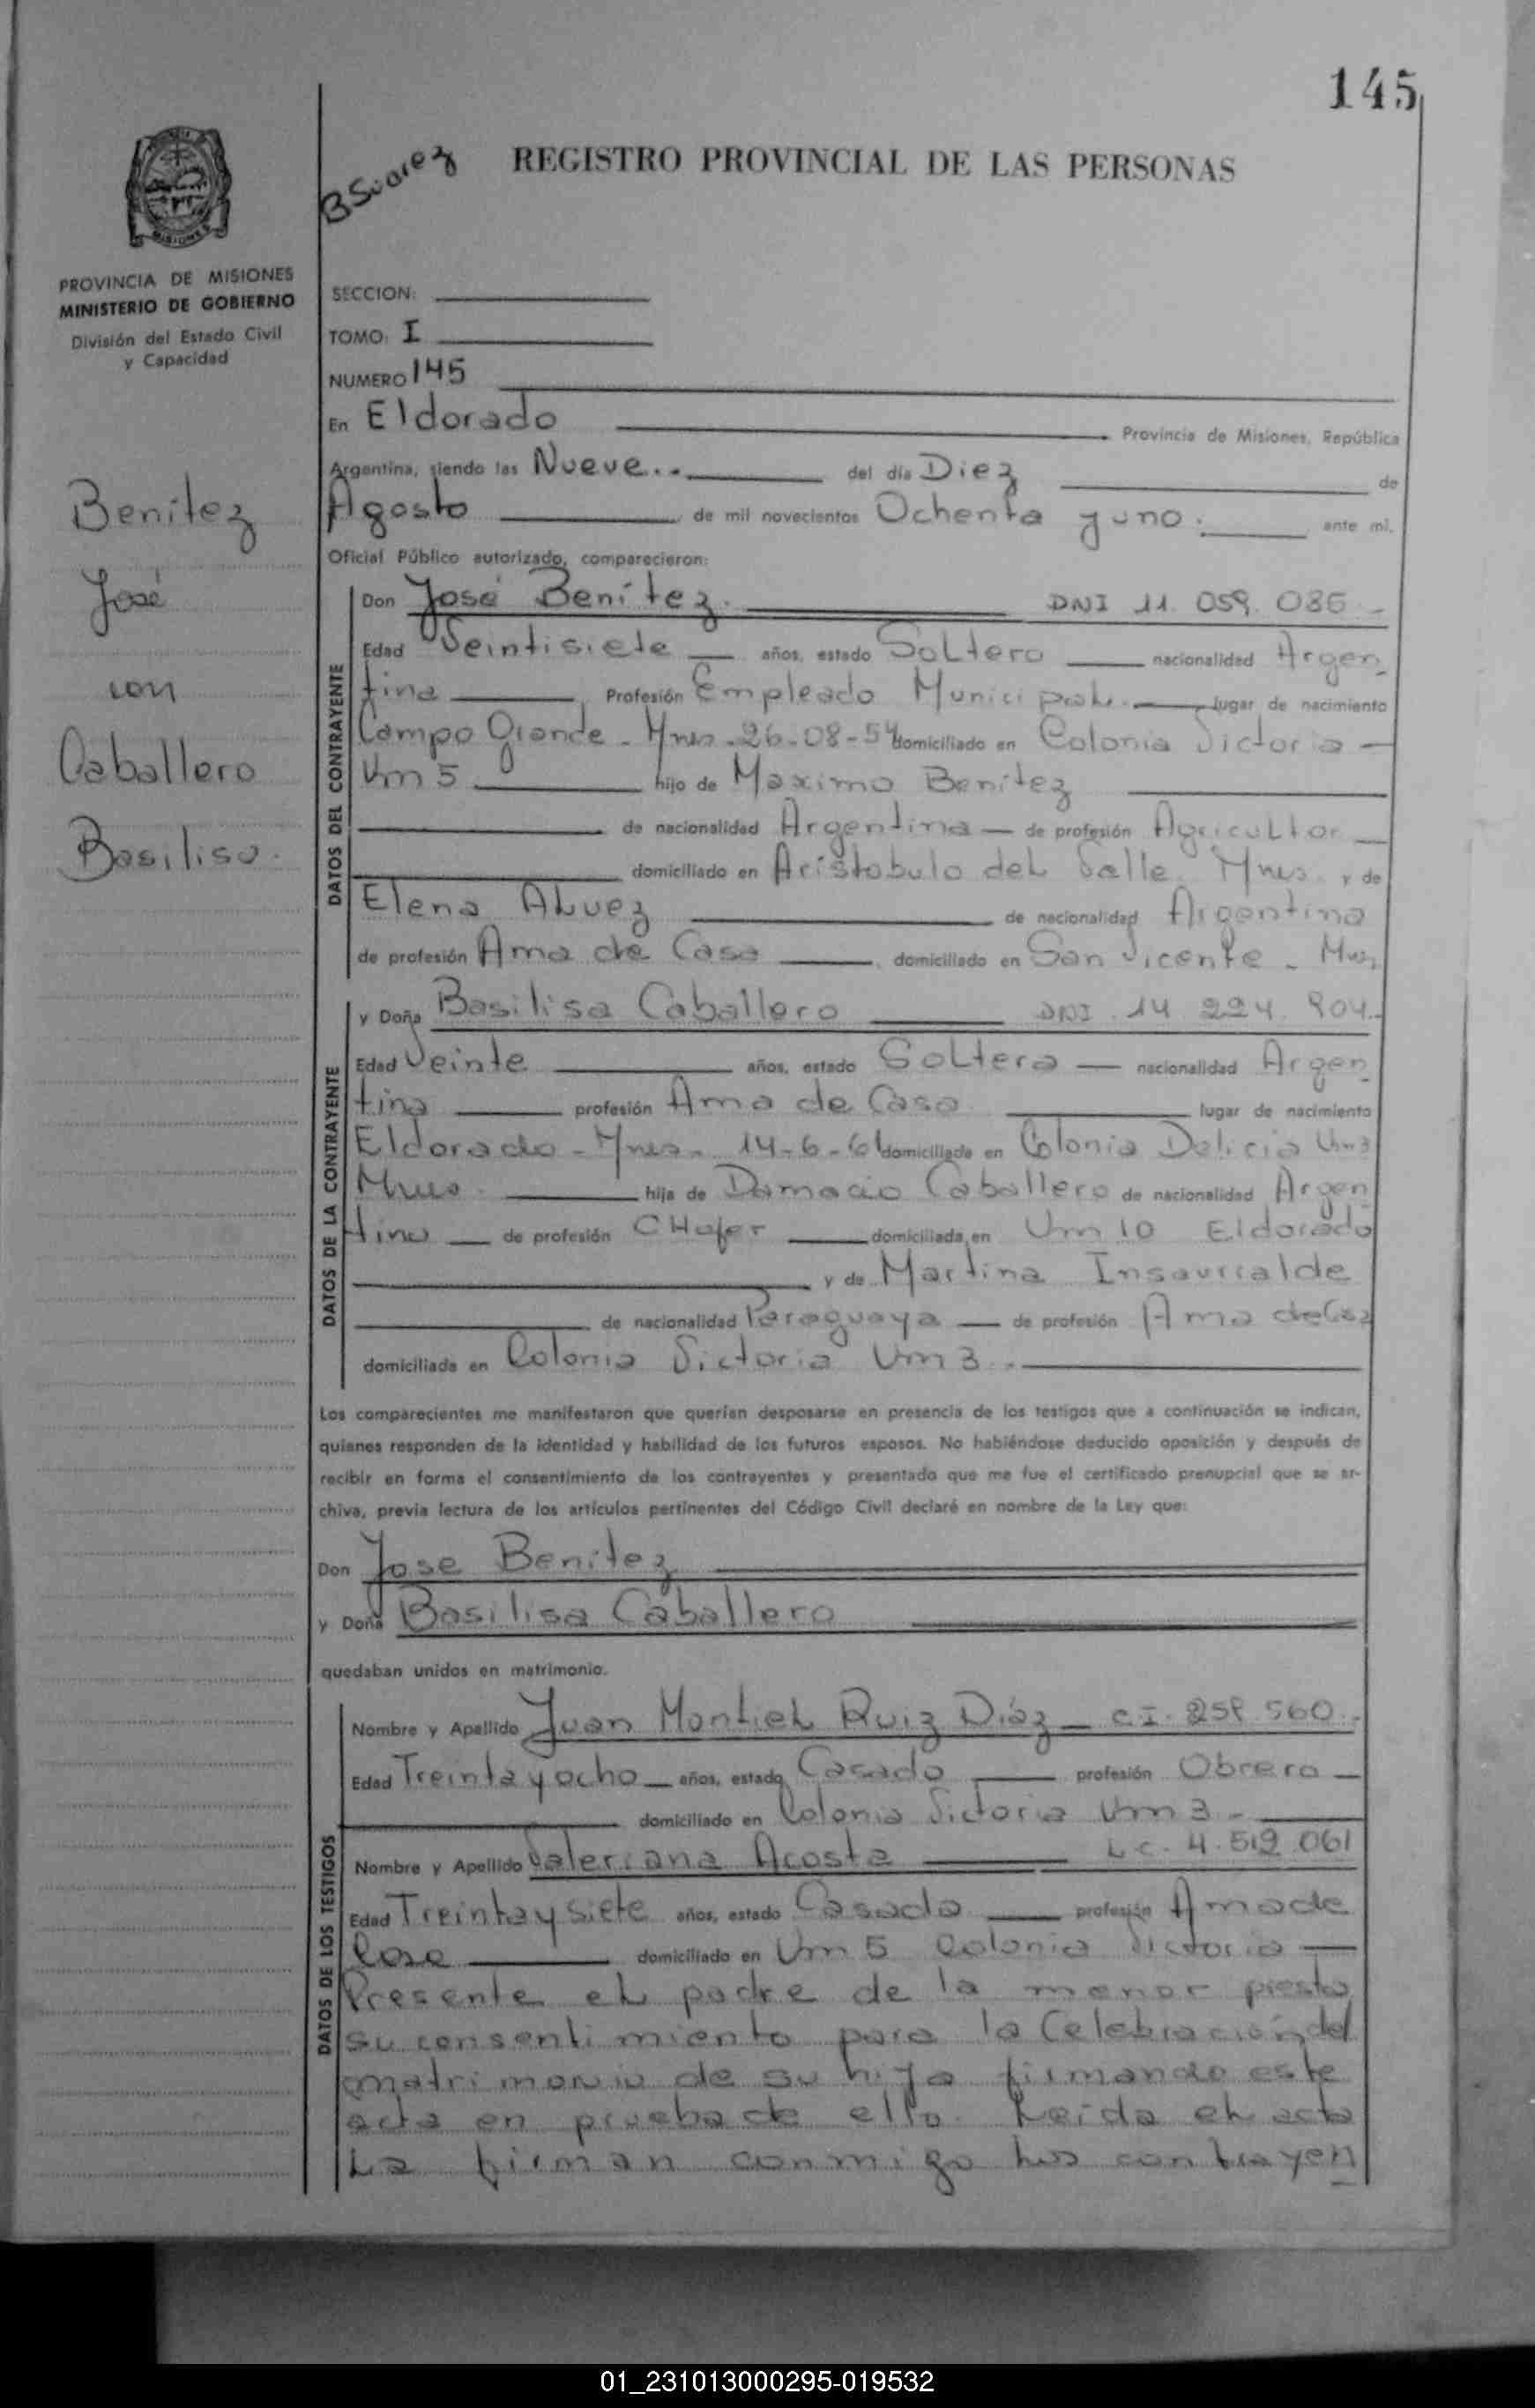 145
BSuarez
REGISTRO PROVINCIAL DE LAS PERSONAS
MISIONES
PROVINCIA DE MISIONES
MINISTERIO DE GOBIERNO
División del Estado Civil
y Capacidad
SECCION:
TOMO: I
NUMERO 145
En Eldorado Provincia de Misiones, República
Argentina, siendo las Nueve.. del día Diez de
Agosto de mil novecientos Ochenta y uno. ante mí,
Oficial Público autorizado, comparecieron:
Benítez
José
con
Caballero
Basilisa.
DATOS DEL CONTRAYENTE
Don José Benítez. DNI 11.059.086.-
Edad Veintisiete años, estado Soltero nacionalidad Argen
tina Profesión Empleado Municipal. lugar de nacimiento
Campo Grande - Mnes - 26-08-54 domiciliado en Colonia Victoria -
Km 5 hijo de Maximo Benítez
de nacionalidad Argentina - de profesión Agricultor
domiciliado en Aristobulo del Valle. Mnes. y de
Elena Alvez de nacionalidad Argentina
de profesión Ama de Casa, domiciliado en San Vicente - Mnes
DATOS DE LA CONTRAYENTE
y Doña Basilisa Caballero DNI 14.224.804.-
Edad Veinte años, estado Soltera nacionalidad Argen
tina profesión Ama de Casa lugar de nacimiento
Eldorado - Mnes - 14-6-61 domiciliada en Colonia Delicia Km 3
Mnes. hija de Damacio Caballero de nacionalidad Argen
tino de profesión CHofer domiciliada en Km 10 Eldorado
y de Martina Insaurralde
de nacionalidad Paraguaya de profesión Ama de Casa
domiciliada en Colonia Victoria Km 3.-
Los comparecientes me manifestaron que querían desposarse en presencia de los testigos que a continuación se indican,
quienes responden de la identidad y habilidad de los futuros esposos. No habiéndose deducido oposición y después de
recibir en forma el consentimiento de los contrayentes y presentado que me fue el certificado prenupcial que se ar-
chiva, previa lectura de los artículos pertinentes del Código Civil declaré en nombre de la Ley que:
Don Jose Benítez
y Doña Basilisa Caballero
quedaban unidos en matrimonio.
DATOS DE LOS TESTIGOS
Nombre y Apellido Juan Montiel Ruiz Díaz - C.I. 259.560.-
Edad Treinta y ocho años, estado Casado profesión Obrero
domiciliado en Colonia Victoria Km 3 -
Nombre y Apellido Valeriana Acosta L.C. 4.519.061
Edad Treinta y siete años, estado Casada profesión Ama de
Casa domiciliado en Km 5 Colonia Victoria
Presente el padre de la menor presta
su consentimiento para la Celebración del
matrimonio de su hija firmando este
acta en prueba de ello. Leida el acta
La firman conmigo los contrayen
01_231013000295-019532